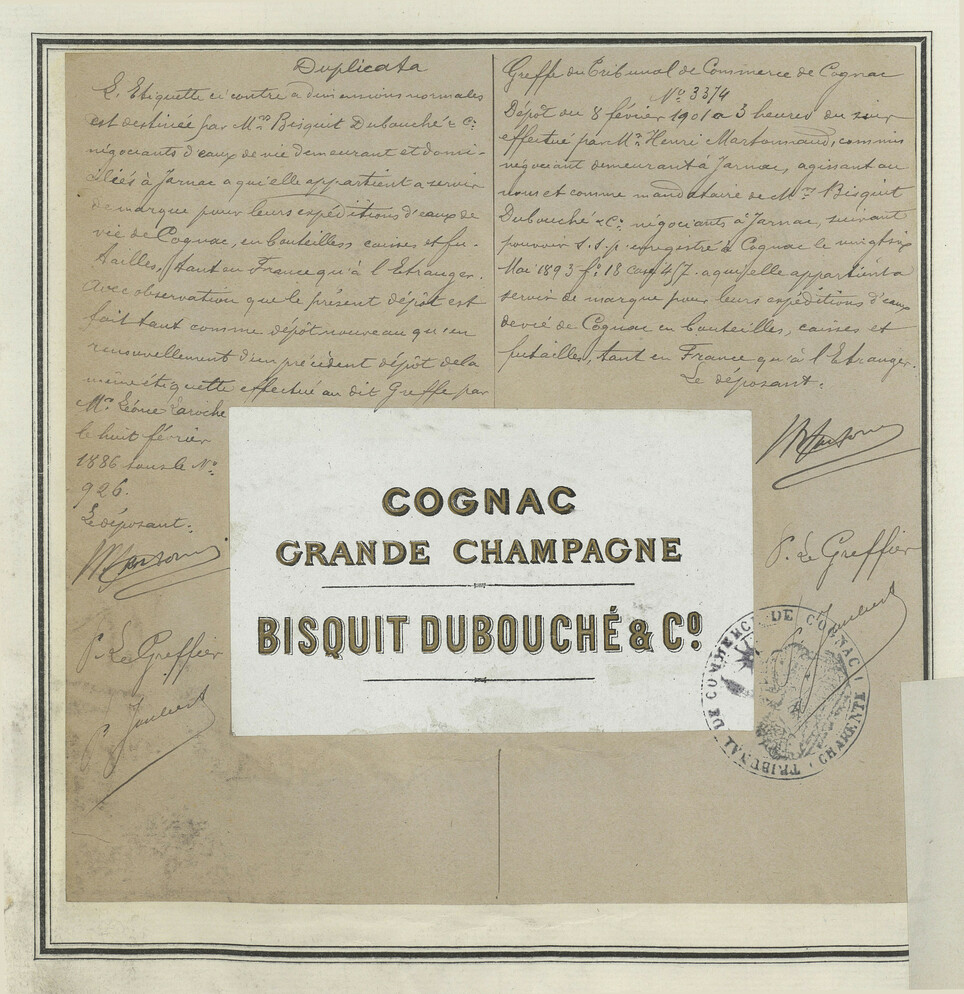 Duplicata
L'Etiquette ci contre a dimensions normales
est destinée par M.rs Bisquit Dubouché & C.ie
négociants d'eaux de vie demeurant et domi-
ciliés à Jarnac a qu'elle appartient a servir
de marque pour leurs expéditions d'eaux de
vie de Cognac, en bouteilles, caisses et fu-
tailles, tant en France qu'à l'Etranger.
Avec observation que le présent dépôt est
fait tant comme dépôt nouveau qu'en
renouvellement d'un précédent dépôt de la
même étiquette effectué au dit Greffe par
M.r Léonce Laroche
le huit février
1886 sous le N.o
926.
Le déposant:
P. Le Greffier
P. Joubert
Greffe du Tribunal de Commerce de Cognac
N.o 3374
Dépôt du 8 février 1901 a 3 heures du soir
effectué par M.r Henri Martonnaud, commis
négociant demeurant à Jarnac, agissant au
nom et comme mandataire de M.rs Bisquit
Dubouché & C.ie négociants à Jarnac, suivant
pouvoir s.s.p. enregistré a Cognac le vingt six
Mai 1893 f.o 18 case 457. a qu'elle appartient a
servir de marque pour leurs expéditions d'eaux
de vie de Cognac en bouteilles, caisses et
futailles, tant en France qu'à l'Etranger.
Le déposant.
P. Le Greffier
Joubert
COGNAC
GRANDE CHAMPAGNE
BISQUIT DUBOUCHÉ & Cº
TRIBUNAL DE COMMERCE DE COGNAC
CHARENTE